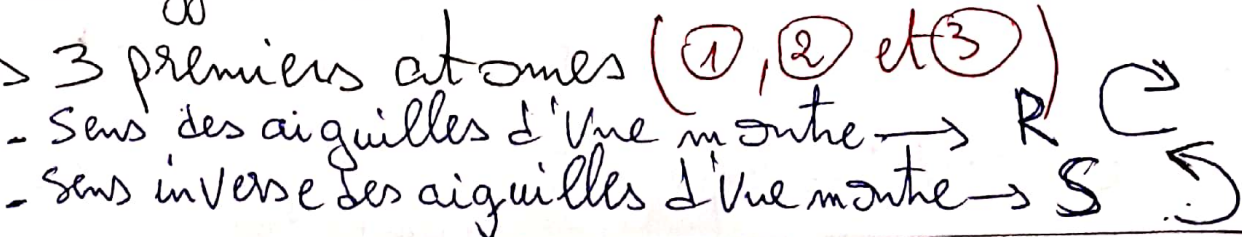 > 3 prêmiers atomes (①, ② et ③)
- Sens des aiguilles d'Une montre → R
- Sens inverse des aiguilles d'Une montre → S